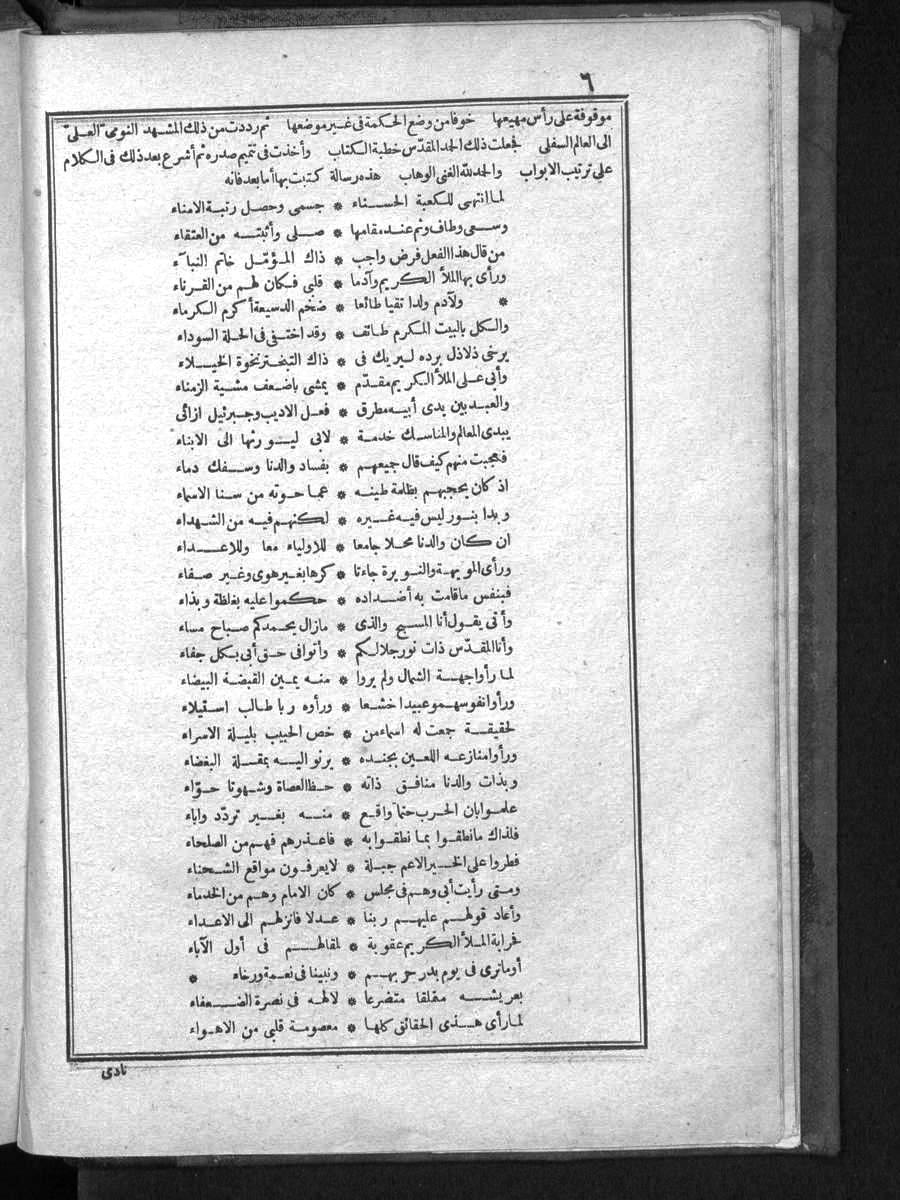 ٦
موقوفة على رأس مهيعها خوفا من وضع الحكمة فى غير موضعها ثم رددت من ذلك المشهد النومى العلى
الى العالم السفلى فجعلت ذلك الحد المقدّس خطبة الكتاب وأخذت فى تتميم صدره ثم أشرع بعد ذلك فى الكلام
على ترتيب الابواب والحمدلله الغنى الوهاب هذه رسالة كتبت بها أما بعد فانه
لما انتهى للكعبة الحسناء * جسمى وحصل رتبة الامناء
وسعى وطاف وثم عند مقامها * صلى وأثبته من العتقاء
من قال هذا الفعل فرض واجب * ذاك المؤمّل خاتم النبآء
ورأى بها الملأ الكريم وآدما * قلبى فكان لهم من القرناء
* ولآدم ولدا تقيا طائعا * ضخم الدسيعة أكرم الكرماء
والكل بالبيت المكرم طائف * وقد اختفى فى الحلة السوداء
يرخى ذلاذل برده ليريك فى * ذاك التبختر نخوة الخيلاء
وأبى على الملأ الكريم مقدّم * يمشى باضعف مشية الزمناء
والعبد بين يدى أبيه مطرق * فعل الاديب وجبرئيل ازائى
يبدى المعالم والمناسك خدمة * لابى ليورثها الى الابناء
فعجبت منهم كيف قال جميعهم * بفساد والدنا وسفك دماء
اذ كان يحجبهم بظلمة طينه * عما حوته من سنا الاسماء
وبدا بنور ليس فيه غيره * لكنهم فيه من الشهداء
ان كان والدنا محلا جامعا * للاولياء معا وللاعداء
ورأى المويهة والنويرة جاءتا * كرها بغير هوى وغير صفاء
فبنفس ما قامت به أضداده * حكموا عليه بغلظة وبذاء
وأتى يقول أنا المسبح والذى * مازال يحمدكم صباح مساء
وأنا المقدّس ذات نور جلالكم * وأتوا فى حق أبى بكل جفاء
لما رأوا جهة الشمال ولم يروا * منه يمين القبضة البيضاء
ورأوا نفوسهمو عبيدا خشعا * ورأوه ربا طالب استيلاء
لحقيقة جمعت له اسماء من * خص الحبيب بليلة الاسراء
ورأوا منازعه اللعين بجنده * يرنو اليه بمقلة البغضاء
وبذات والدنا منافق ذاته * حظ العصاة وشهوتا حوّاء
علموا بان الحرب حتما واقع * منه بغير تردّد واباء
فلذاك ما نطقوا بما نطقوا به * فاعذرهم فهم من الصلحاء
فطروا على الخير الاعم جبلة * لا يعرفون مواقع الشحناء
ومتى رأيت أبى وهم فى مجلس * كان الامام وهم من الخدماء
وأعاد قولهم عليهم ربنا * عدلا فانزلهم الى الاعداء
فحرابة الملأ الكريم عقوبة * لمقالهم فى أول الآباء
أوما ترى فى يوم بدر حربهم * ونبينا فى نعمة ورخاء *
بعريشه متملقا متضرعا * لالهه فى نصرة الضعفاء
لما رأى هذى الحقائق كلها * معصومة قلبى من الاهواء
نادى